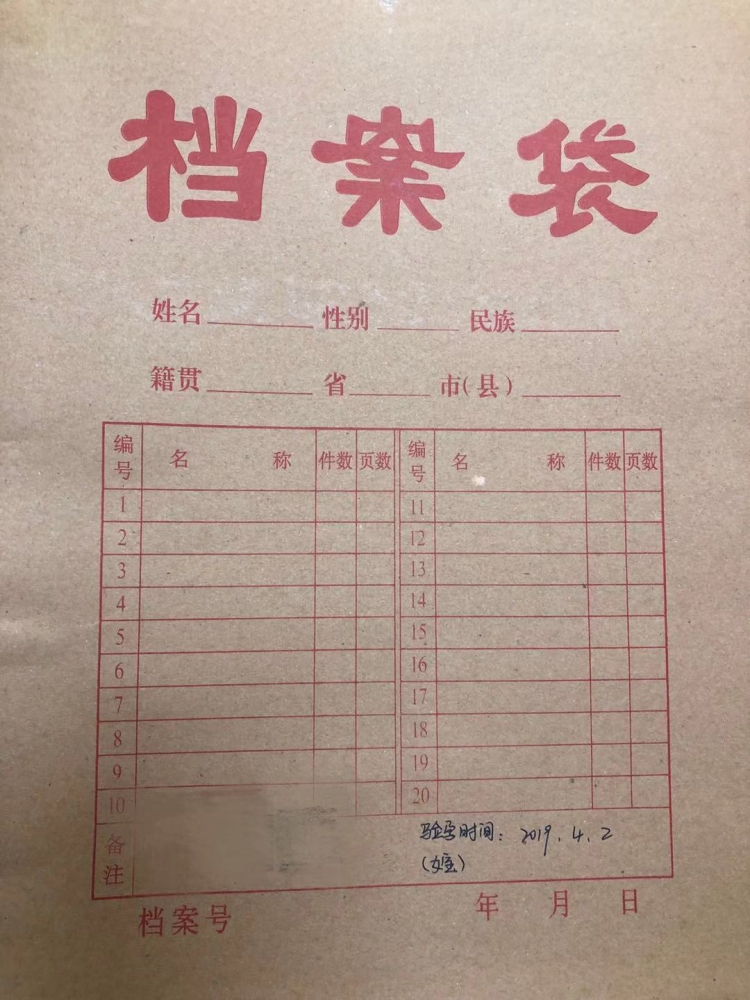 档案袋
姓名 性别 民族
籍贯 省 市(县)
编号 名称 件数 页数 编号 名称 件数 页数
1 11
2 12
3 13
4 14
5 15
6 16
7 17
8 18
9 19
10 20
备注 时间：2019.4.2
档案号 年 月 日